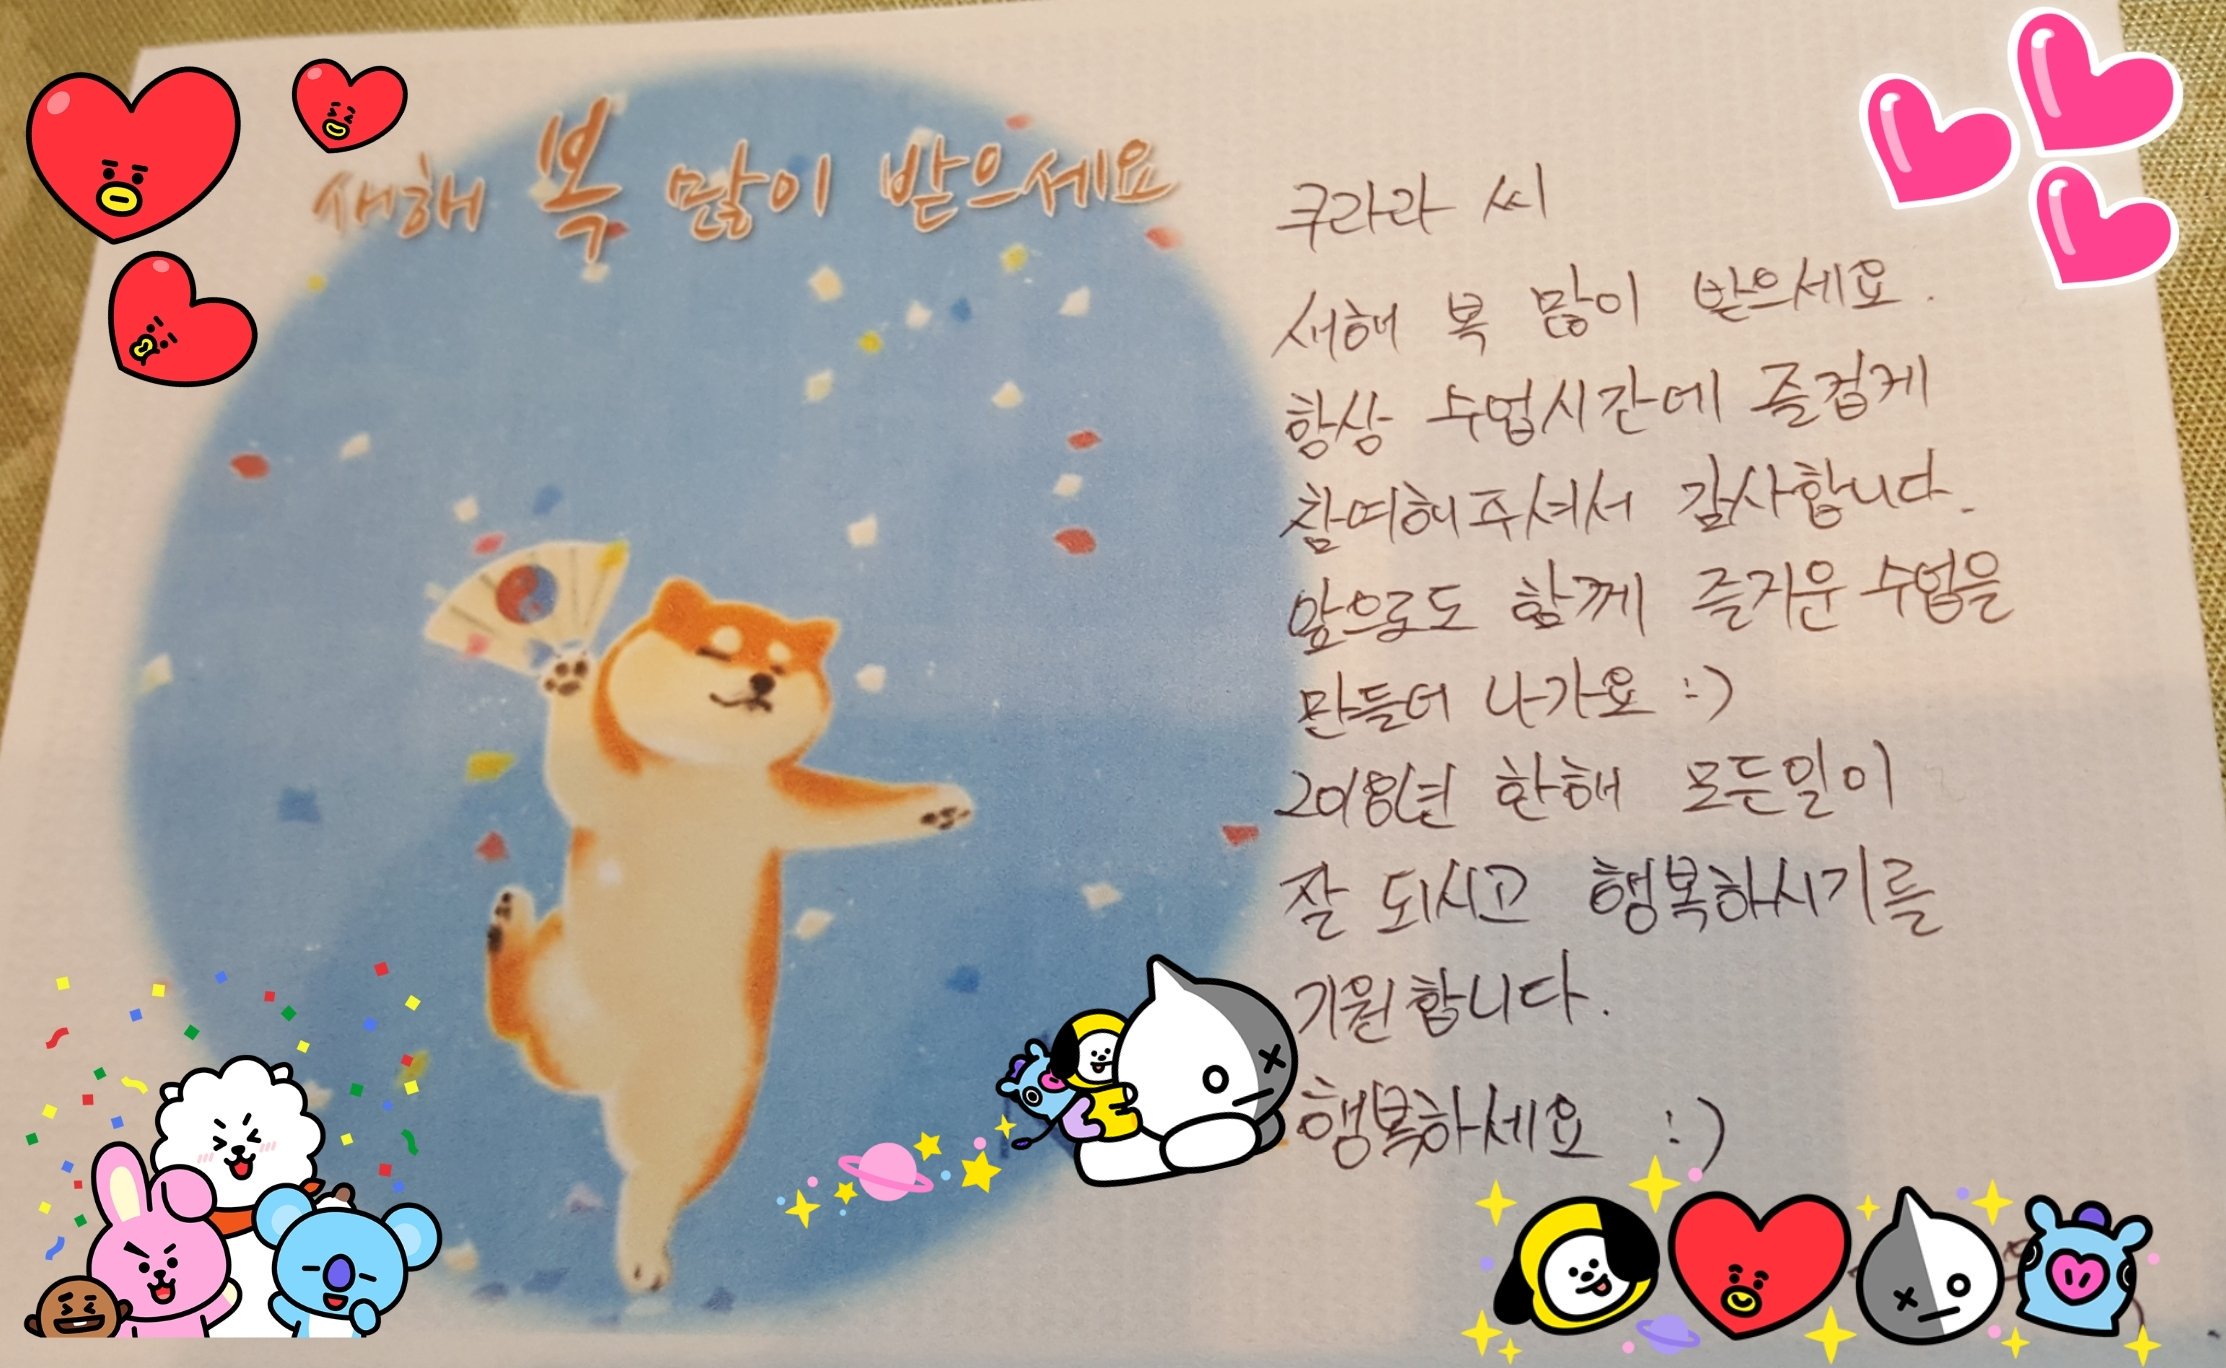 새해 복 많이 받으세요
쿠라라 씨
새해 복 많이 받으세요.
항상 수업시간에 즐겁게
참여해주셔서 감사합니다.
앞으로도 함께 즐거운 수업을
만들어 나가요 :)
2018년 한해 모든일이
잘 되시고 행복하시기를
기원합니다.
행복하세요 :)